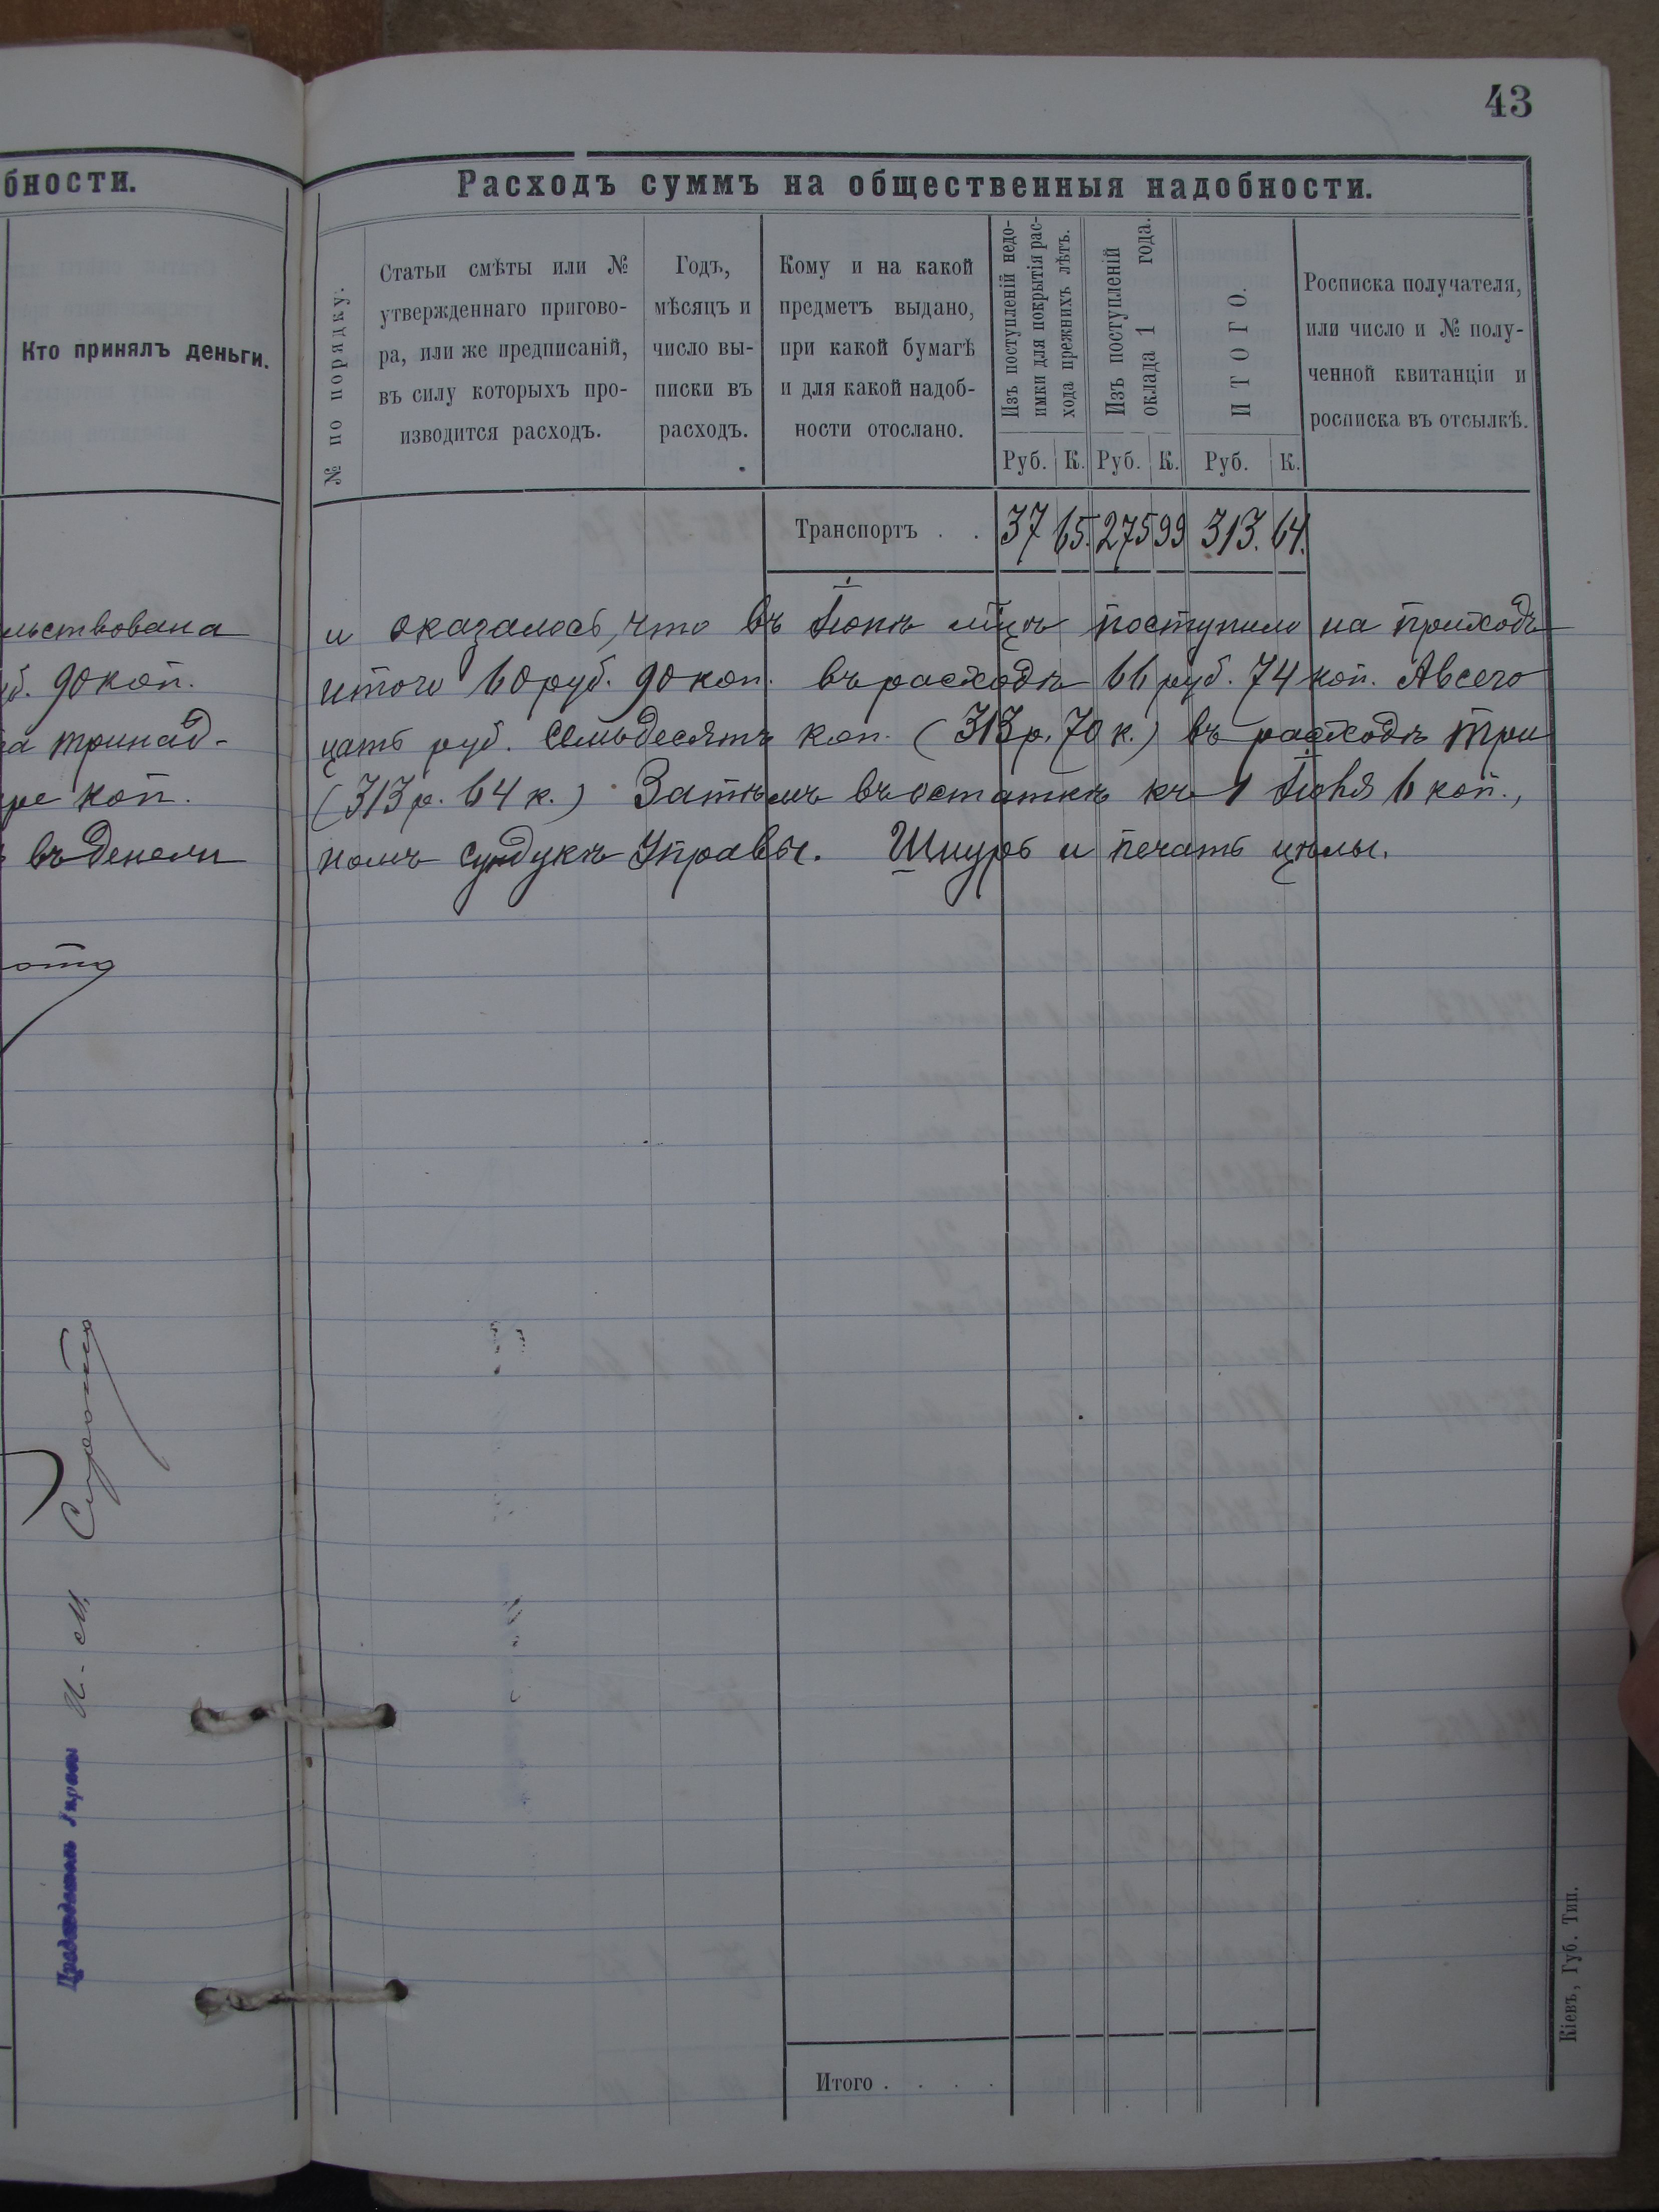 43
бности.
Кто принялъ деньги.
льствована
б. 90 коп.
а тринад-
ре коп.
въ денежн
И. М.
Расходъ суммъ на общественныя надобности.
№ по порядку.
Статьи смѣты или №
утвержденнаго пригово-
ра, или же предписаній,
въ силу которыхъ про-
изводится расходъ.
Годъ,
мѣсяцъ и
число вы-
писки въ
расходъ.
Кому и на какой
предметъ выдано,
при какой бумагѣ
и для какой надоб-
ности отослано.
Изъ поступленій недо-
имки для покрытія рас-
хода прежнихъ лѣтъ.
Изъ поступленій
оклада 1 года.
ИТОГО.
Росписка получателя,
или число и № полу-
ченной квитанціи и
росписка въ отсылкѣ.
Руб. К. Руб. К. Руб. К.
Транспортъ . . 37 65. 275 99 313. 64.
и оказалось, что въ Іюнѣ м-цѣ поступило на приходъ
итого 60 руб. 90 коп. въ расходѣ 66 руб. 74 коп. А всего
цать руб. семьдесятъ коп. (313 р. 70 к.) въ расходѣ три
(313 р. 64 к.) Затѣмъ въ остаткѣ къ 1 6 коп.,
номъ сундукѣ Управы. Шнуръ и печать цѣлы.
Итого . . . .
Кіевъ, Губ. Тип.